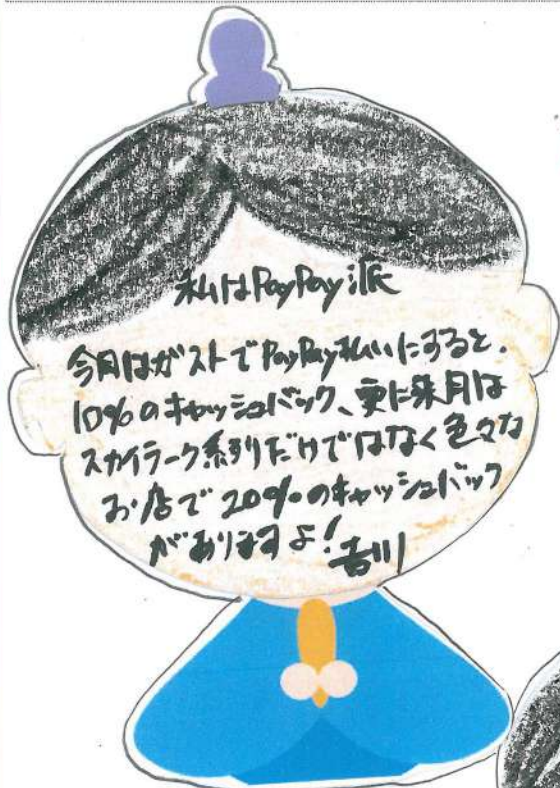 私はPayPay派
今月はガストでPayPay払いにすると、
10%のキャッシュバック、更に来月は
スカイラーク系列だけではなく色々な
お店で20%のキャッシュバック
がありますよ!
吉川